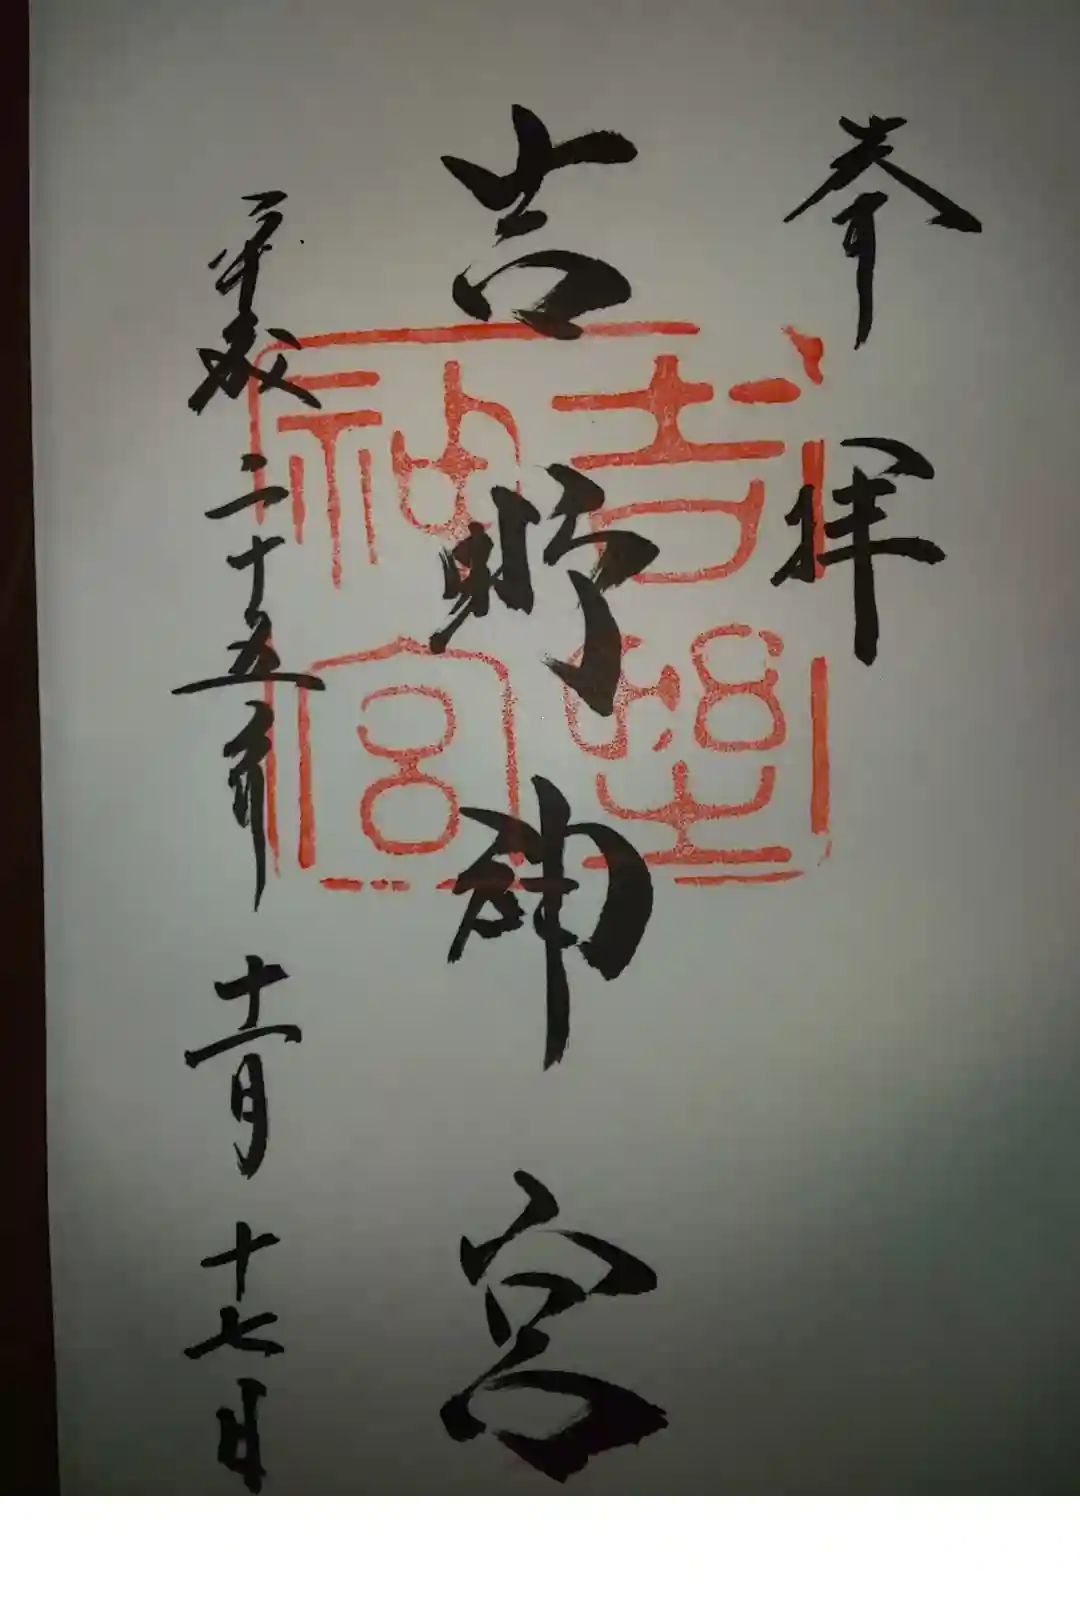 奉拝
吉野神宮
平成二十五年十一月十七日
吉野神宮